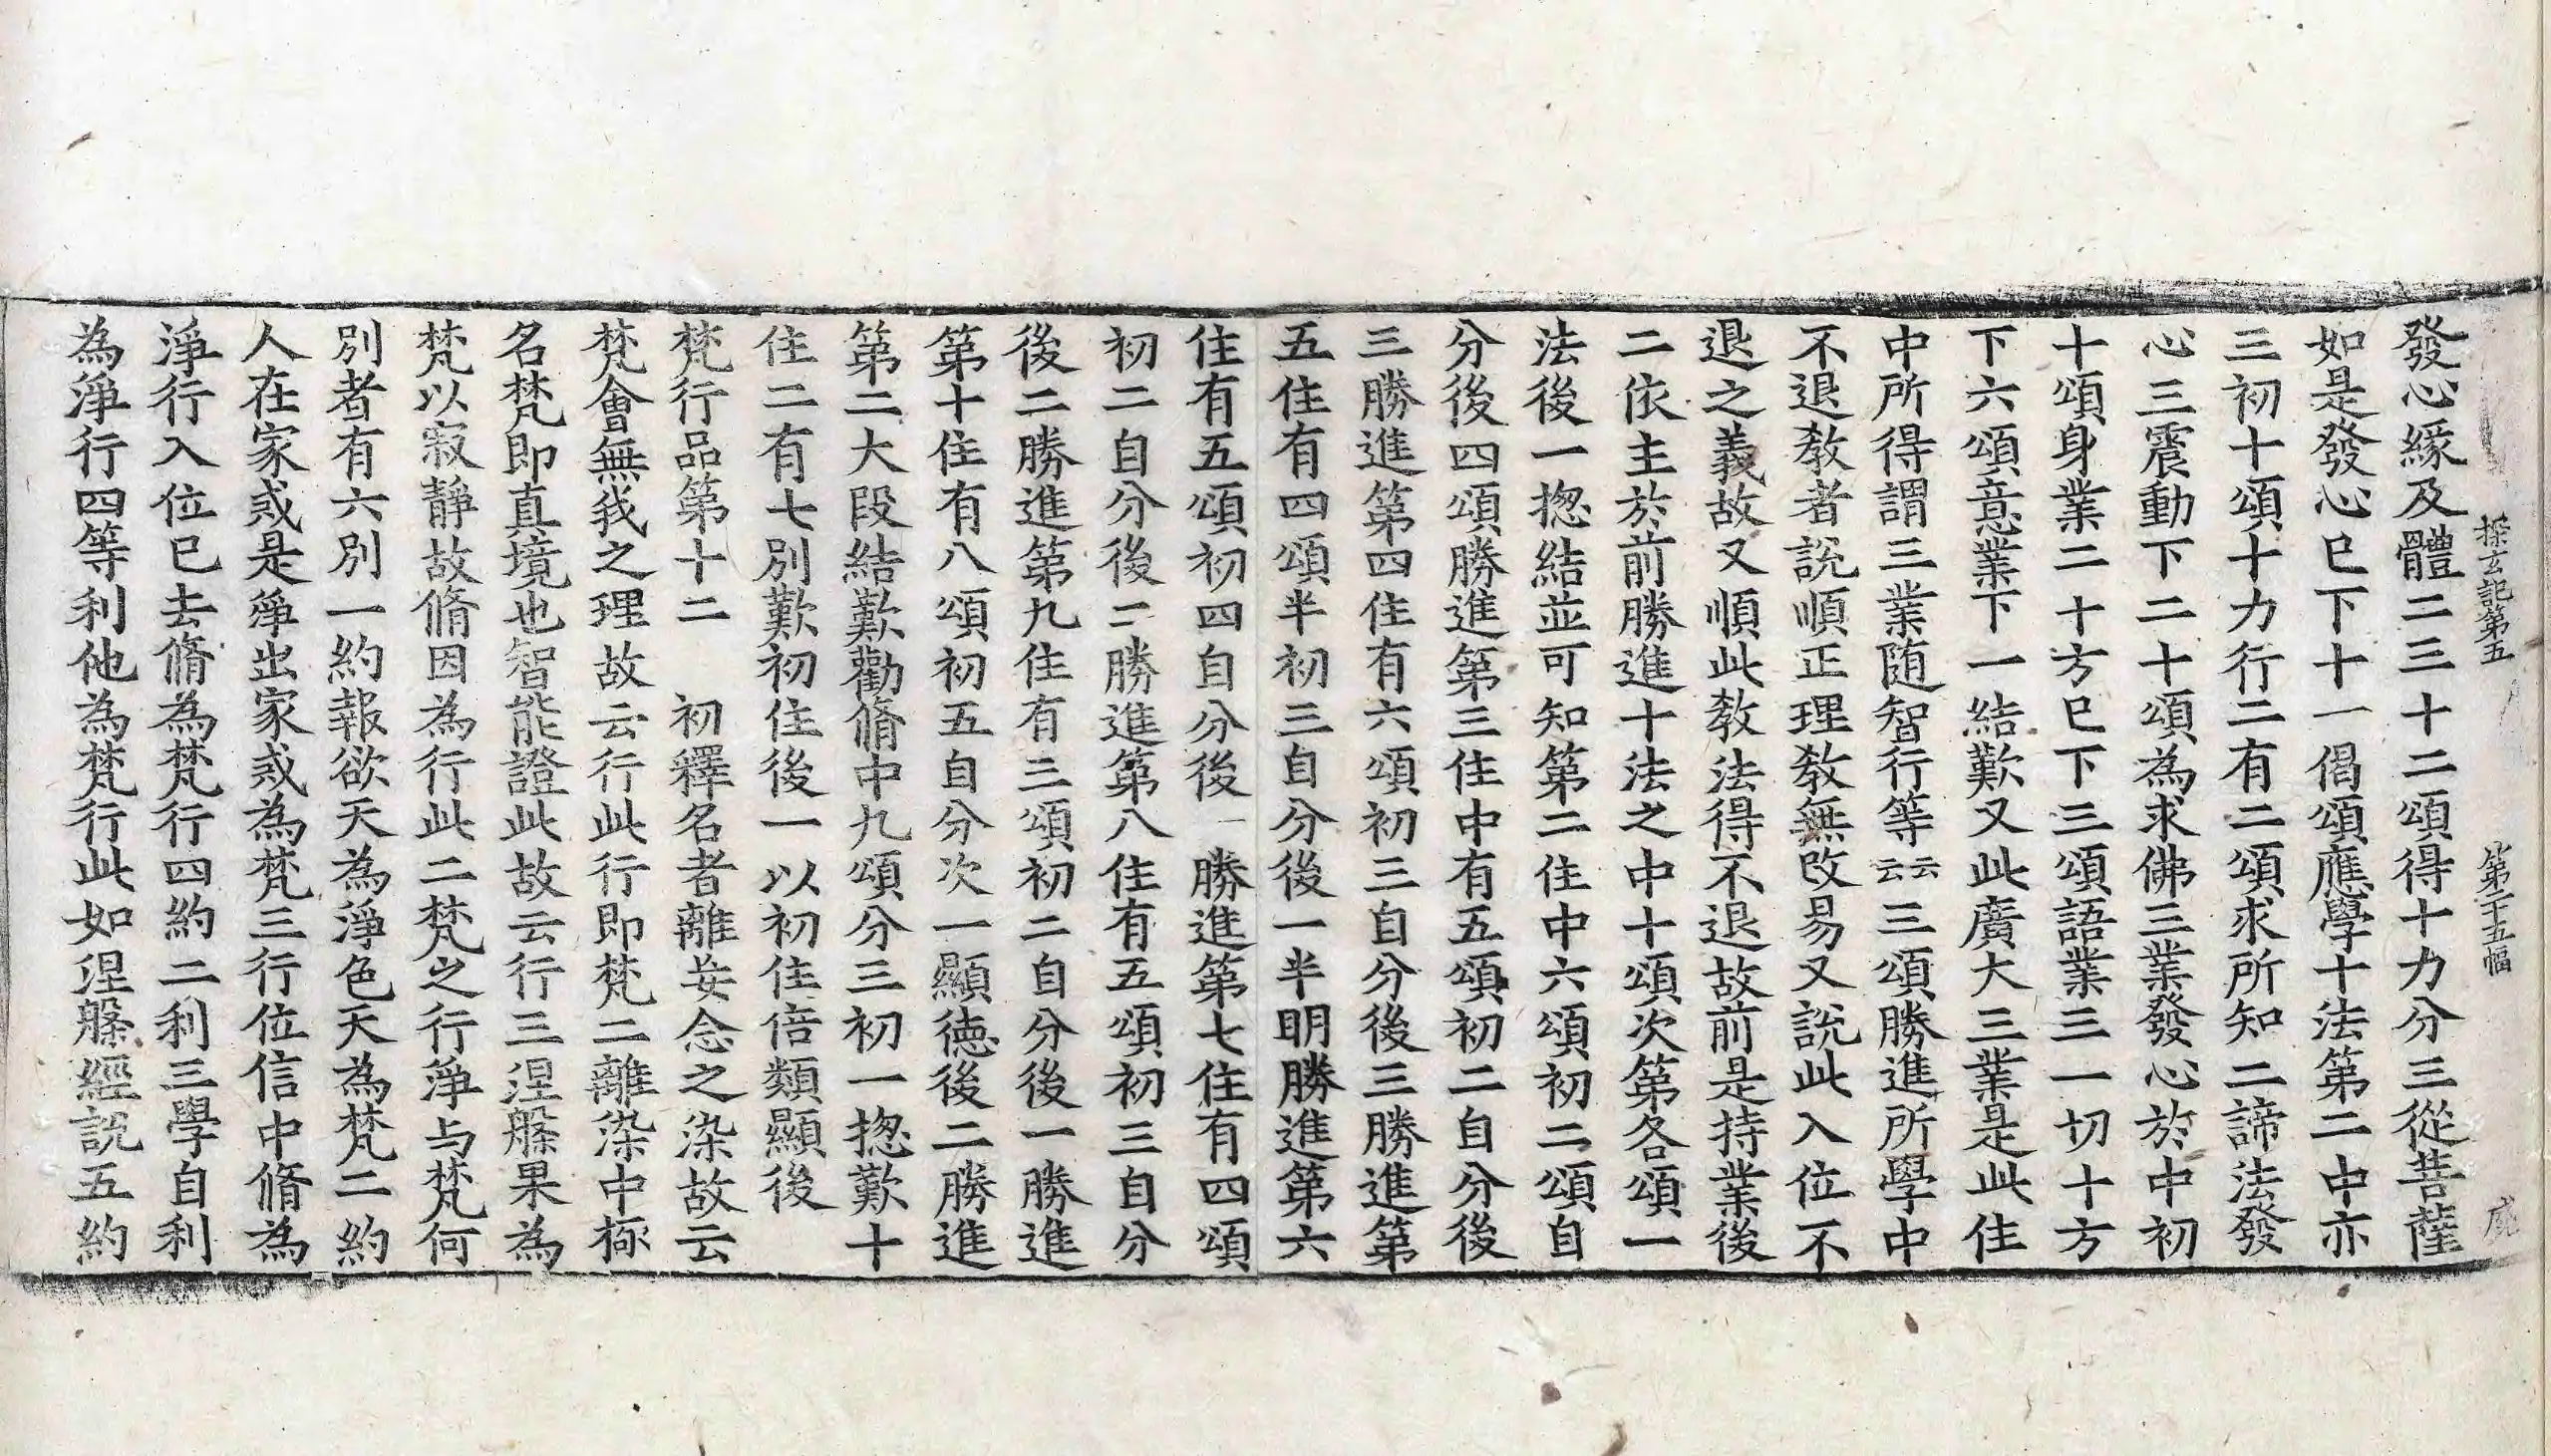 探玄記第五　第二十五幅
發心緣及體二三十二頌得十力分三從菩薩
如是發心巳下十一偈頌應學十法第二中亦
三初十頌十力行二有二頌求所知二諦法發
心三震動下二十頌為求佛三業發心於中初
十頌身業二十方巳下三頌語業三一切十方
下六頌意業下一結歎又此廣大三業是此住
中所得謂三業随智行等云云三頌勝進所學中
不退教者說順正理教無改易又說此入位不
退之義故又順此教法得不退故前是持業後
二依主於前勝進十法之中十頌次第各頌一
法後一揔結並可知第二住中六頌初二頌自
分後四頌勝進第三住中有五頌初二自分後
三勝進第四住有六頌初三自分後三勝進第
五住有四頌半初三自分後一半明勝進第六
住有五頌初四自分後一勝進第七住有四頌
初二自分後二勝進第八住有五頌初三自分
後二勝進第九住有三頌初二自分後一勝進
第十住有八頌初五自分次一顯德後二勝進
第二大段結歎勸脩中九頌分三初一揔歎十
住二有七別歎初住後一以初住倍類顯後
梵行品第十二　初釋名者離妄念之染故云
梵會無我之理故云行此行即梵二離染中極
名梵即真境也智能證此故云行三涅槃果為
梵以寂靜故脩因為行此二梵之行淨与梵何
別者有六別一約報欲天為淨色天為梵二約
人在家或是淨出家或為梵三行位信中脩為
淨行入位已去脩為梵行四約二利三學自利
為淨行四等利他為梵行此如涅槃經說五約